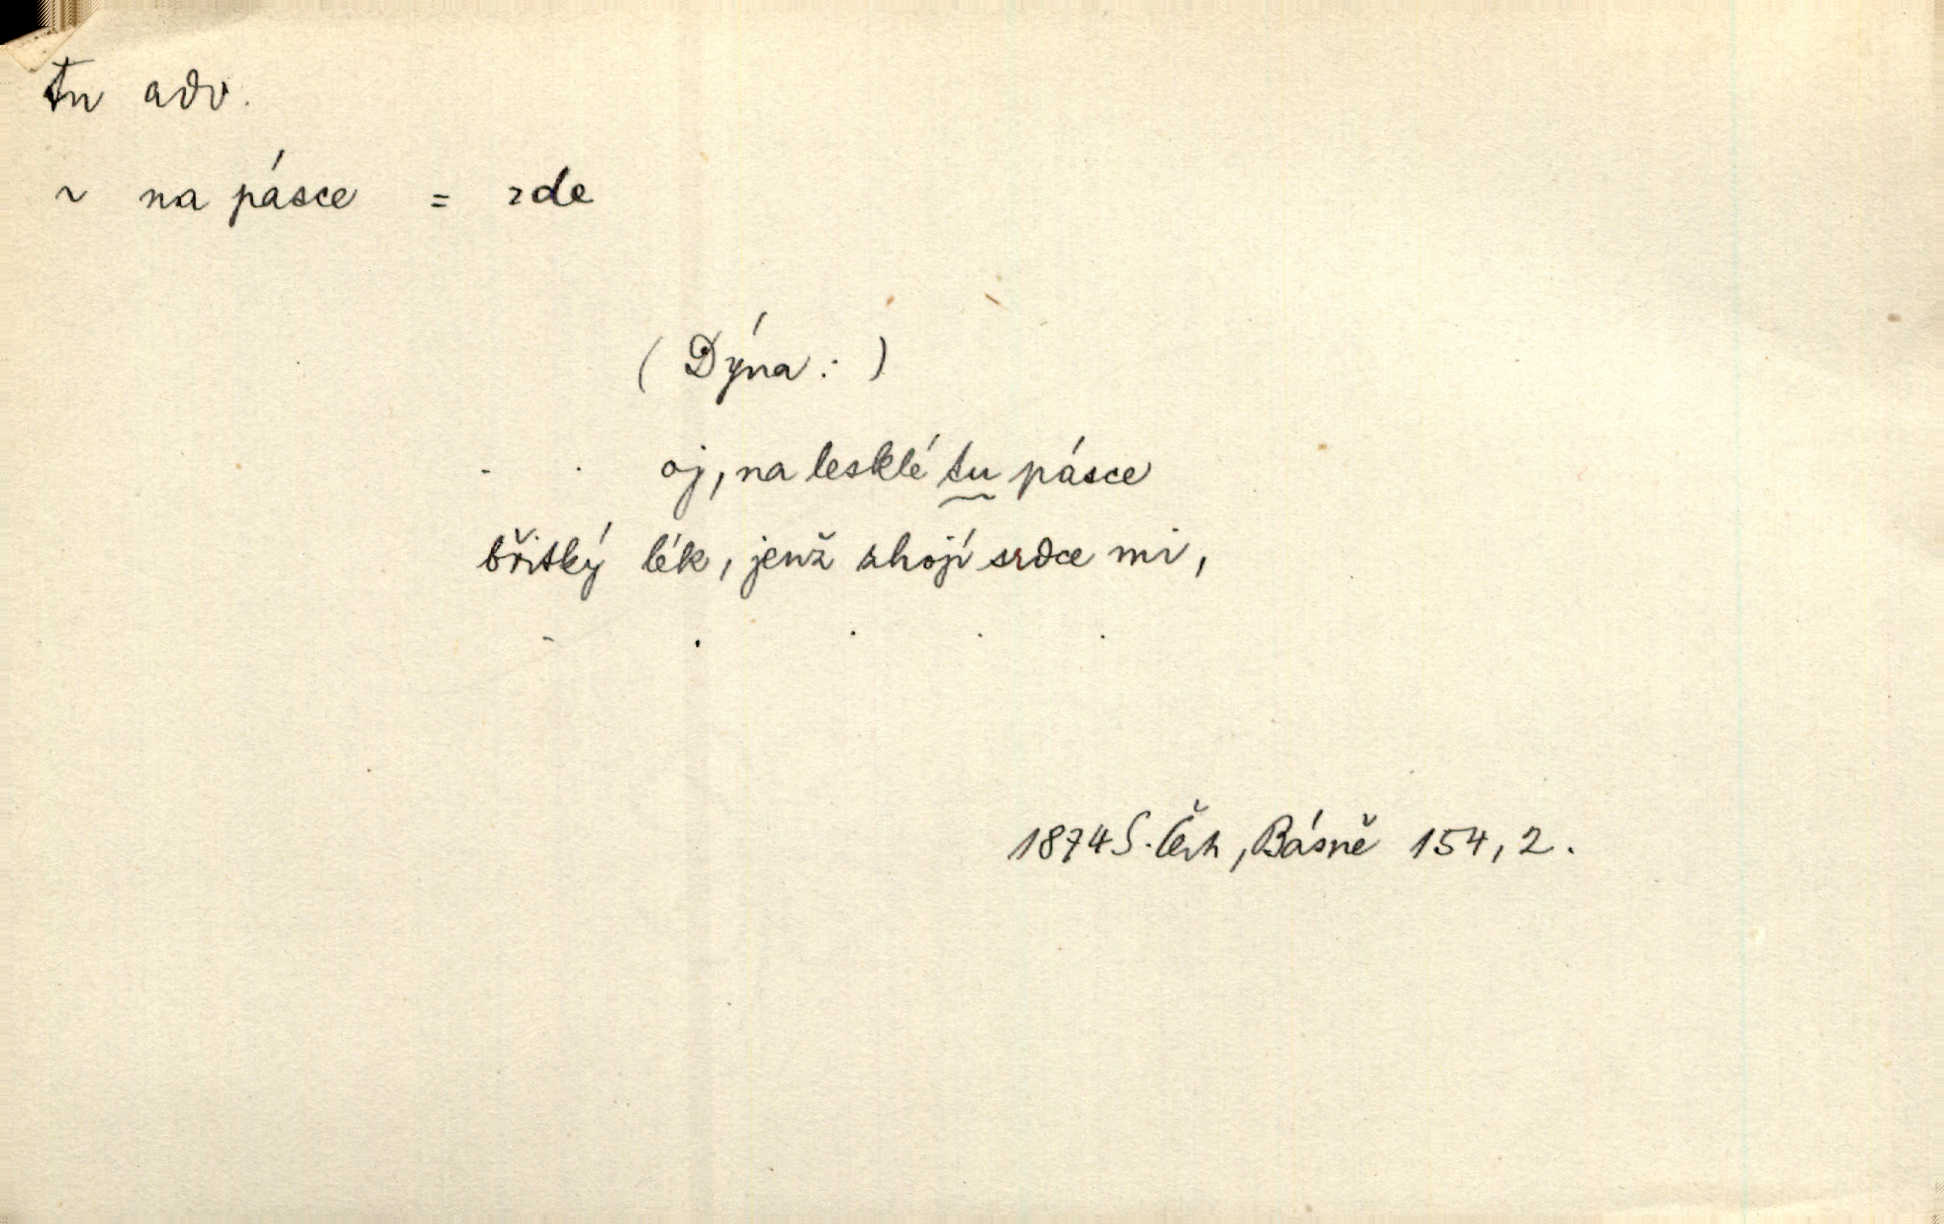 tu adv.
~ na pásce = zde
( Dýna : )
. . oj, na lesklé tu pásce
břitký lék, jenž zhojí srdce mi,
. . . . .
1874 S. Čech, Básně 154, 2.